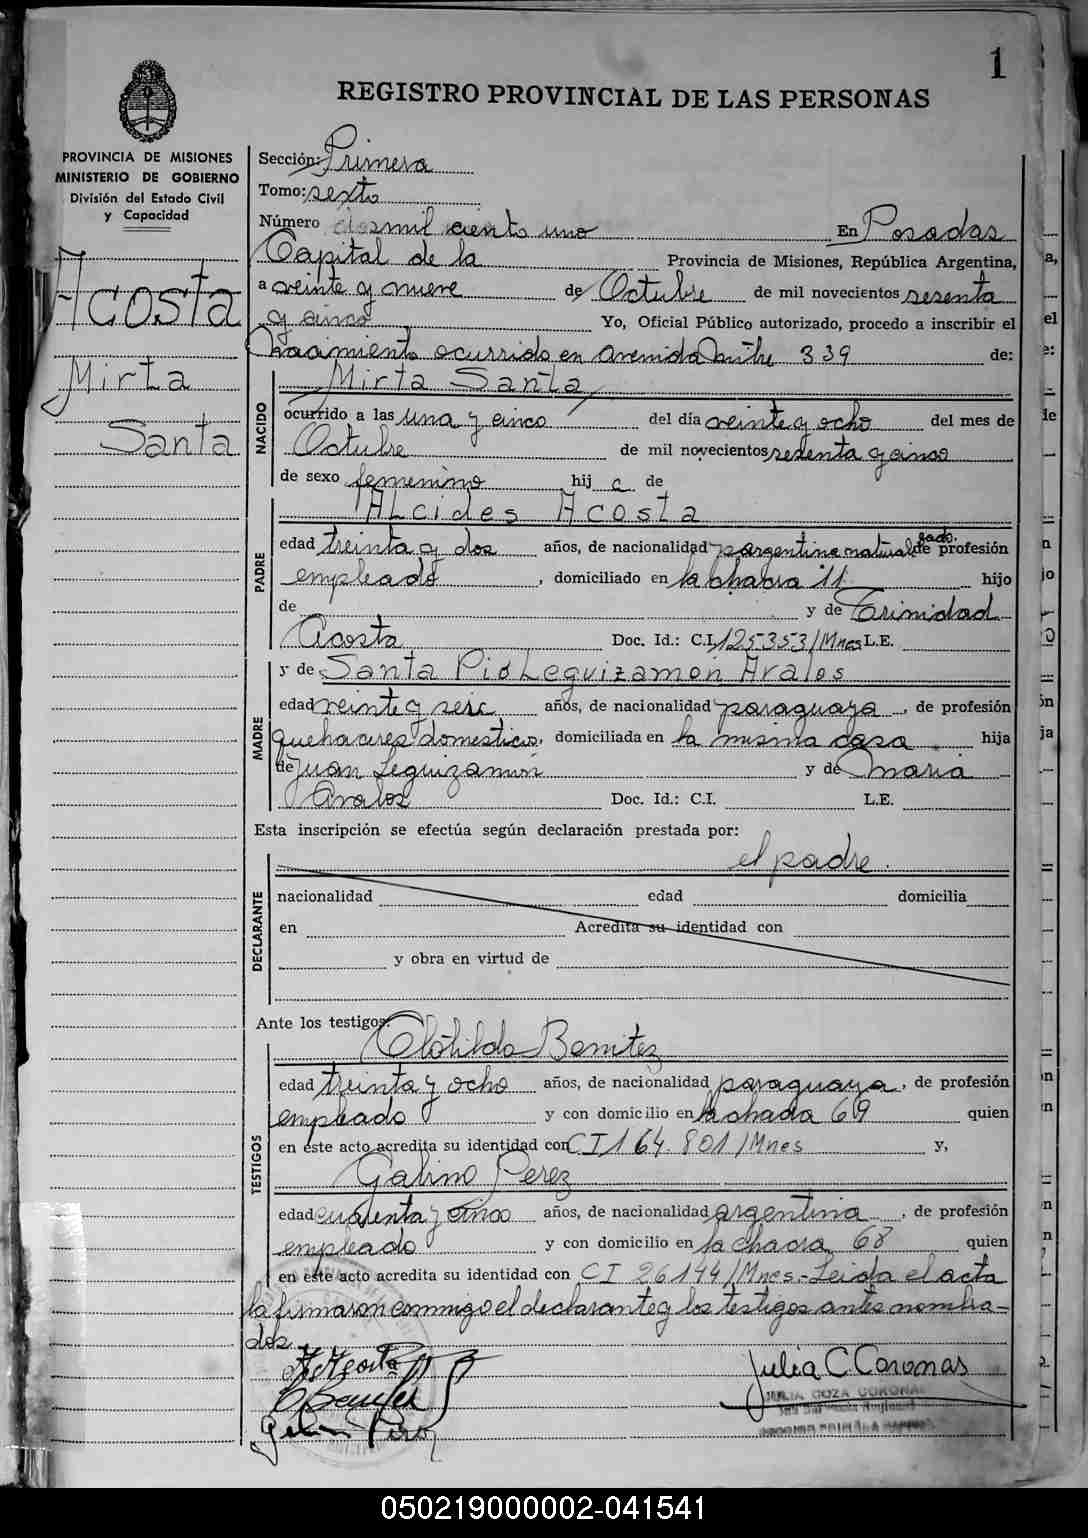 1
REGISTRO PROVINCIAL DE LAS PERSONAS
PROVINCIA DE MISIONES
MINISTERIO DE GOBIERNO
División del Estado Civil
y Capacidad
Acosta
Mirta
Santa
Sección: Primera
Tomo: sexto
Número dosmil ciento uno En Posadas
Capital de la Provincia de Misiones, República Argentina,
a veinte y nueve de Octubre de mil novecientos sesenta
y cinco Yo, Oficial Público autorizado, procedo a inscribir el
nacimiento ocurrido en avenida mitre 339 de:
NACIDO
Mirta Santa
ocurrido a las una y cinco del día veinte y ocho del mes de
Octubre de mil novecientos sesenta y cinco
de sexo femenino hij a de
PADRE
Alcides Acosta
edad treinta y dos años, de nacionalidad argentina naturalizado. de profesión
empleado, domiciliado en la chacra 11 hijo
de y de Trinidad
Acosta Doc. Id.: C.I. 125353/Mnes L.E.
MADRE
y de Santa Pio Leguizamon Avalos
edad veinte y seis años, de nacionalidad paraguaya, de profesión
quehaceres domesticos, domiciliada en la misma casa hija
de Juan Leguizamon y de Maria
Avalos Doc. Id.: C.I. L.E.
Esta inscripción se efectúa según declaración prestada por:
el padre.
DECLARANTE
nacionalidad edad domicilia
en Acredita su identidad con
y obra en virtud de
Ante los testigos:
TESTIGOS
Clotilda Benitez
edad treinta y ocho años, de nacionalidad paraguaya, de profesión
empleado y con domicilio en la chacra 69 quien
en este acto acredita su identidad con CI 164.801/Mnes y,
Galino Perez
edad cuarenta y cinco años, de nacionalidad argentina, de profesión
empleado y con domicilio en la chacra 68 quien
en este acto acredita su identidad con CI 26144/Mnes.- Leida el acta
la firmaron conmigo el declarante y los testigos antes nombra-
dos.
Julia C. Coronas
050219000002-041541